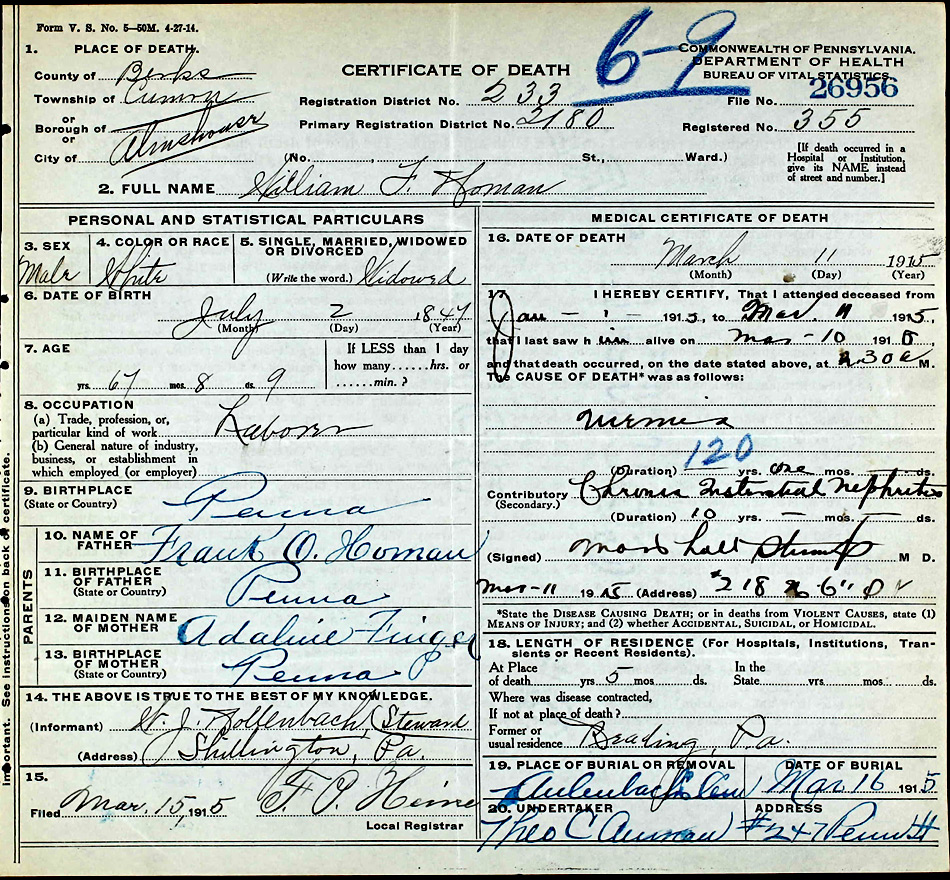 Form V. S. No. 5—50M. 4-27-14.
1. PLACE OF DEATH.
County of Berks
Township of Cumru
or
Borough of
or
Almshouse
City of
CERTIFICATE OF DEATH
Registration District No. 233
Primary Registration District No. 2180
(No. , St., Ward.)
6-9
COMMONWEALTH OF PENNSYLVANIA.
DEPARTMENT OF HEALTH
BUREAU OF VITAL STATISTICS.
File No. 26956
Registered No. 355
[If death occurred in a
Hospital or Institution,
give its NAME instead
of street and number.]
2. FULL NAME William F. Homan
PERSONAL AND STATISTICAL PARTICULARS
3. SEX
Male
4. COLOR OR RACE
White
5. SINGLE, MARRIED, WIDOWED
OR DIVORCED
(Write the word.) Widowed
6. DATE OF BIRTH
July 2 1847
(Month) (Day) (Year)
7. AGE
yrs. 67 mos. 8 ds. 9
If LESS than 1 day
how many......hrs. or
......min. ?
8. OCCUPATION
(a) Trade, profession, or,
particular kind of work Laborer
(b) General nature of industry,
business, or establishment in
which employed (or employer)
9. BIRTHPLACE
(State or Country) Penna
PARENTS
10. NAME OF
FATHER Frank O. Homan
11. BIRTHPLACE
OF FATHER
(State or Country) Penna
12. MAIDEN NAME
OF MOTHER Adaline Finger
13. BIRTHPLACE
OF MOTHER
(State or Country) Penna
14. THE ABOVE IS TRUE TO THE BEST OF MY KNOWLEDGE.
(Informant) J. Hollenbach (Steward
(Address) Shillington, Pa.
15.
Filed Mar. 15, 1915 F. O. Heine
Local Registrar
MEDICAL CERTIFICATE OF DEATH
16. DATE OF DEATH
March 11 1915
(Month) (Day) (Year)
17. I HEREBY CERTIFY, That I attended deceased from
Jan - 1 - 1915, to Mar. 11 1915,
that I last saw him alive on Mar - 10 1915,
and that death occurred, on the date stated above, at 2.30 a M.
The CAUSE OF DEATH* was as follows:
Uremia
120
(Duration) yrs. one mos. ds.
Contributory Chronic Interstitial Nephritis
(Secondary.)
(Duration) 10 yrs. — mos. — ds.
(Signed) M D.
Mar-11 1915 (Address) #218 6" 
*State the DISEASE CAUSING DEATH; or in deaths from VIOLENT CAUSES, state (1)
MEANS OF INJURY; and (2) whether ACCIDENTAL, SUICIDAL, or HOMICIDAL.
18. LENGTH OF RESIDENCE (For Hospitals, Institutions, Tran-
sients or Recent Residents).
At Place In the
of death yrs. 5 mos. ds. State yrs. mos. ds.
Where was disease contracted,
If not at place of death?
Former or
usual residence Reading, Pa.
19. PLACE OF BURIAL OR REMOVAL
Aulenbach's Cem
DATE OF BURIAL
Mar 16 1915
20. UNDERTAKER
Theo C Auman
ADDRESS
#247 Penn St
Important. See instructions on back of certificate.